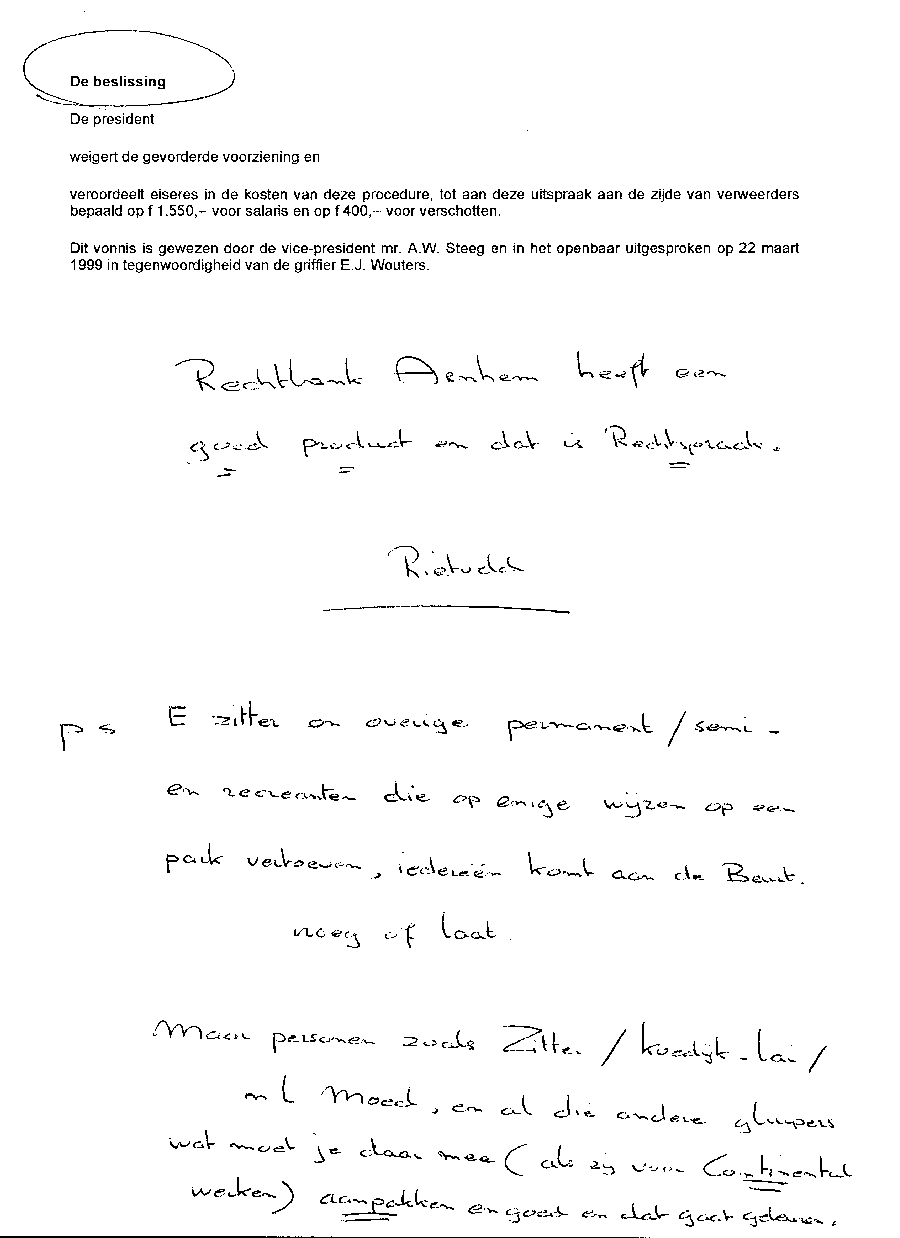 De beslissing
De president
weigert de gevorderde voorziening en
veroordeelt eiseres in de kosten van deze procedure, tot aan deze uitspraak aan de zijde van verweerders
bepaald op f 1.550,-- voor salaris en op f 400,-- voor verschotten.
Dit vonnis is gewezen door de vice-president mr. A.W. Steeg en in het openbaar uitgesproken op 22 maart
1999 in tegenwoordigheid van de griffier E.J. Wouters.
Rechtbank Arnhem heeft een
goed product en dat is Rechtspraak.
Rietveld
ps E zitter en overige permanent / semi -
en recreanten die op enige wijzen op een
park vertoeven, iedereén komt aan de Beurt.
vroeg of laat.
Maar personen zoals Zitter / koedijk - Lai /
Moed, en al die andere glurpers
wat moet je daar mee ( als zij voor Continental
werken) aanpakken en goed en dat gaat gebeuren.